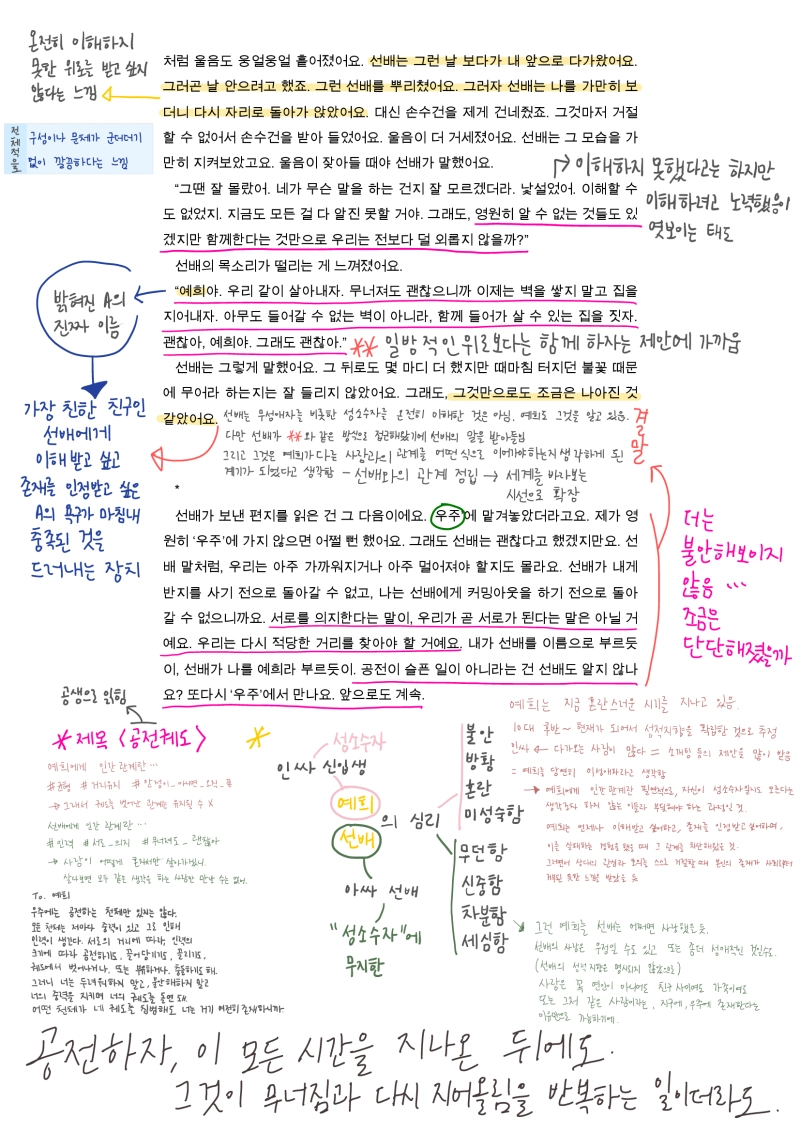 온전히 이해하지
못한 위로를 받고 싶지
않다는 느낌
전체적으로
구성이나 문체가 군더더기
없이 깔끔하다는 느낌
처럼 울음도 웅얼웅얼 흩어졌어요. 선배는 그런 날 보다가 내 앞으로 다가왔어요.
그러곤 날 안으려고 했죠. 그런 선배를 뿌리쳤어요. 그러자 선배는 나를 가만히 보
더니 다시 자리로 돌아가 앉았어요. 대신 손수건을 제게 건네줬죠. 그것마저 거절
할 수 없어서 손수건을 받아 들었어요. 울음이 더 거세졌어요. 선배는 그 모습을 가
만히 지켜보았고요. 울음이 잦아들 때야 선배가 말했어요.
이해하지 못했다고는 하지만
이해하려고 노력했음이
엿보이는 태도
“그땐 잘 몰랐어. 네가 무슨 말을 하는 건지 잘 모르겠더라. 낯설었어. 이해할 수
도 없었지. 지금도 모든 걸 다 알진 못할 거야. 그래도, 영원히 알 수 없는 것들도 있
겠지만 함께한다는 것만으로 우리는 전보다 덜 외롭지 않을까?”
선배의 목소리가 떨리는 게 느껴졌어요.
밝혀진 A의
진짜 이름
“예희야. 우리 같이 살아내자. 무너져도 괜찮으니까 이제는 벽을 쌓지 말고 집을
지어내자. 아무도 들어갈 수 없는 벽이 아니라, 함께 들어가 살 수 있는 집을 짓자.
괜찮아, 예희야. 그래도 괜찮아.”
** 일방적인 위로보다는 함께 하자는 제안에 가까움
선배는 그렇게 말했어요. 그 뒤로도 몇 마디 더 했지만 때마침 터지던 불꽃 때문
에 무어라 하는지는 잘 들리지 않았어요. 그래도, 그것만으로도 조금은 나아진 것
같았어요.
가장 친한 친구인
선배에게
이해받고 싶고
존재를 인정받고 싶은
A의 욕구가 마침내
충족된 것을
드러내는 장치
선배는 무성애자를 비롯한 성소수자를 온전히 이해한 것은 아님. 예희도 그것을 알고 있음.
다만 선배가 **와 같은 방식으로 접근해왔기에 선배의 말을 받아들임
그리고 그것은 예희가 다른 사람과의 관계를 어떤 식으로 이어가야하는지 생각하게 된
계기가 되었다고 생각함 - 선배와의 관계 정립 → 세계를 바라보는
시선으로 확장
결말
*
선배가 보낸 편지를 읽은 건 그 다음이에요. 우주에 맡겨놓았더라고요. 제가 영
원히 ‘우주’에 가지 않으면 어쩔 뻔 했어요. 그래도 선배는 괜찮다고 했겠지만요. 선
배 말처럼, 우리는 아주 가까워지거나 아주 멀어져야 할지도 몰라요. 선배가 내게
반지를 사기 전으로 돌아갈 수 없고, 나는 선배에게 커밍아웃을 하기 전으로 돌아
갈 수 없으니까요. 서로를 의지한다는 말이, 우리가 곧 서로가 된다는 말은 아닐 거
예요. 우리는 다시 적당한 거리를 찾아야 할 거예요. 내가 선배를 이름으로 부르듯
이, 선배가 나를 예희라 부르듯이. 공전이 슬픈 일이 아니라는 건 선배도 알지 않나
요? 또다시 ‘우주’에서 만나요. 앞으로도 계속.
더는
불안해보이지
않음 …
조금은
단단해졌을까
공생으로 읽힘
* 제목 <공전궤도>
예희에게 인간관계란 …
→ 그래서 궤도를 벗어난 관계는 유지될 수 X
선배에게 인간관계란 …
#인력 #서로_의지 #무너져도_괜찮아
→ 사람이 어떻게 혼자서만 살아가겠니.
살다보면 모두 같은 생각을 하는 사람만 만날 수는 없어.
To. 예희
우주에는 공전하는 천체만 있지는 않다.
모든 천체는 저마다 중력이 있고 그로 인해
인력이 생긴다. 서로의 거리에 따라, 인력의
크기에 따라 공전하기도, 끌어당기기도, 끌리기도,
궤도에서 벗어나거나, 또는 충돌하기도 해.
그러니 너는 두려워하지 말고, 불안해하지 말고
너의 중력을 지키며 너의 궤도를 돌면 돼.
어떤 천체가 네 궤도를 침범해도 너는 거기 여전히 존재하니까.
*
성소수자
인싸 신입생
예희
선배
의 심리
아싸 선배
“성소수자”에
무지한
불안
방황
혼란
미성숙함
무던함
신중함
차분함
세심함
예희는 지금 혼란스러운 시기를 지나고 있음.
10대 후반 ~ 현재가 되어서 성정체성을 확립한 것으로 추정
인싸 ← 다가오는 사람이 많다 = 소개팅 등의 제안을 많이 받음
= 예희를 당연히 이성애자라고 생각함
→ 예희에게 인간관계란 필연적으로, 자신이 성소수자일지도 모른다는
생각조차 하지 않는 이들과 부딪혀야 하는 과정인 것.
예희는 언제나 이해받고 싶어하고, 존재를 인정받고 싶어하며,
그런 예희를 선배는 어쩌면 사랑했을 듯.
선배의 사랑은 우정일 수도 있고 또는 좀더 성애적인 것일수도
(선배의 성적지향은 명시되지 않았으므로)
사랑은 꽃 연인이 아니어도 친구 사이여도 가족이어도
또는 그저 같은 사람이라는, 지구에, 우주에 존재한다는
이유만으로 가능하기에.
공전하자, 이 모든 시간을 지나온 뒤에도.
그것이 무너짐과 다시 지어올림을 반복하는 일이더라도.